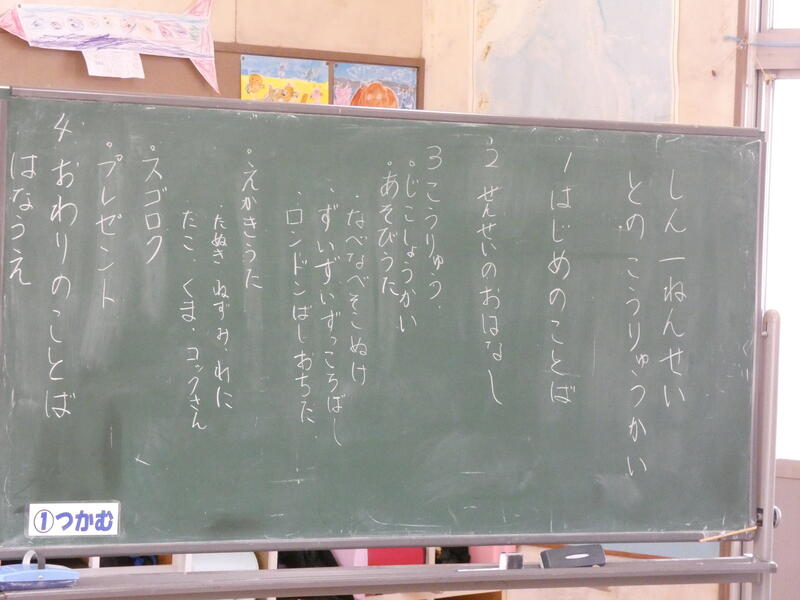 しん一ねんせい
とのこうりゅうかい
1 はじめのことば
2 せんせいのおはなし
3 こうりゅう
・じこしょうかい
・あそびうた
・なべなべそこぬけ
・ずいずいずっころばし
・ロンドンばしおちた
・えかきうた
・たぬき・ねずみ・わに
・たこ・くま・コックさん
・スゴロク
・プレゼント
4 おわりのことば
はなうえ
①つかむ